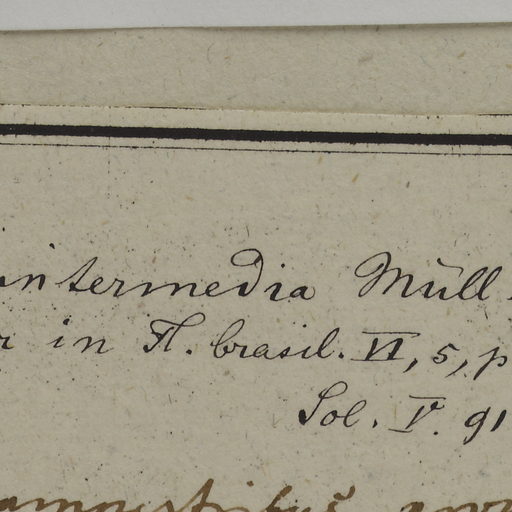 intermedia Müll
r in Fl. brasil. VI, 5, p
Sol. V. 91